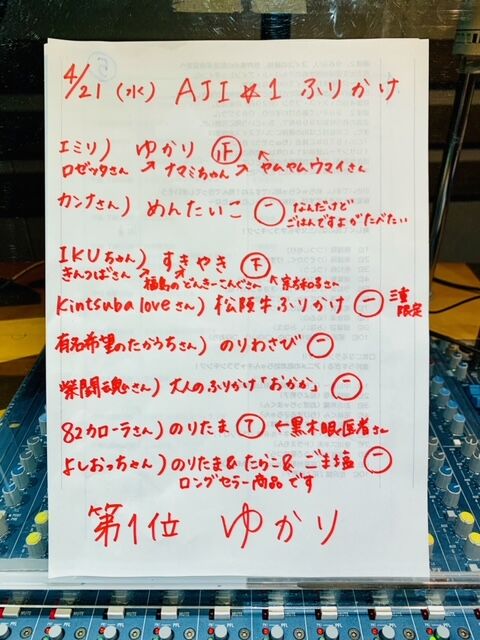 4/21 (水) AJI☆1 ふりかけ
エミリ) ゆかり 正
ロゼッタさん ↗ ナマミちゃん ↗ ↖ ヤムヤムウマイさん
カンナさん) めんたいこ 一 なんだけど
ごはんですよがたべたい
IKUちゃん) すきやき 下
きんつばさん ↗ 福島のどんきーこんぐさん ↗ ↖ 京都和るさん
Kintsuba loveさん) 松阪牛ふりかけ 一 三重
限定
有名希望のたかうちさん) のりわさび 一
紫闘魂さん) 大人のふりかけ「おかか」 一
82カローラさん) のりたま T ← 黒木眼医者さん
よしおっちゃん) のりたま&たらこ& ごま塩 一
ロングセラー商品です
第1位 ゆかり